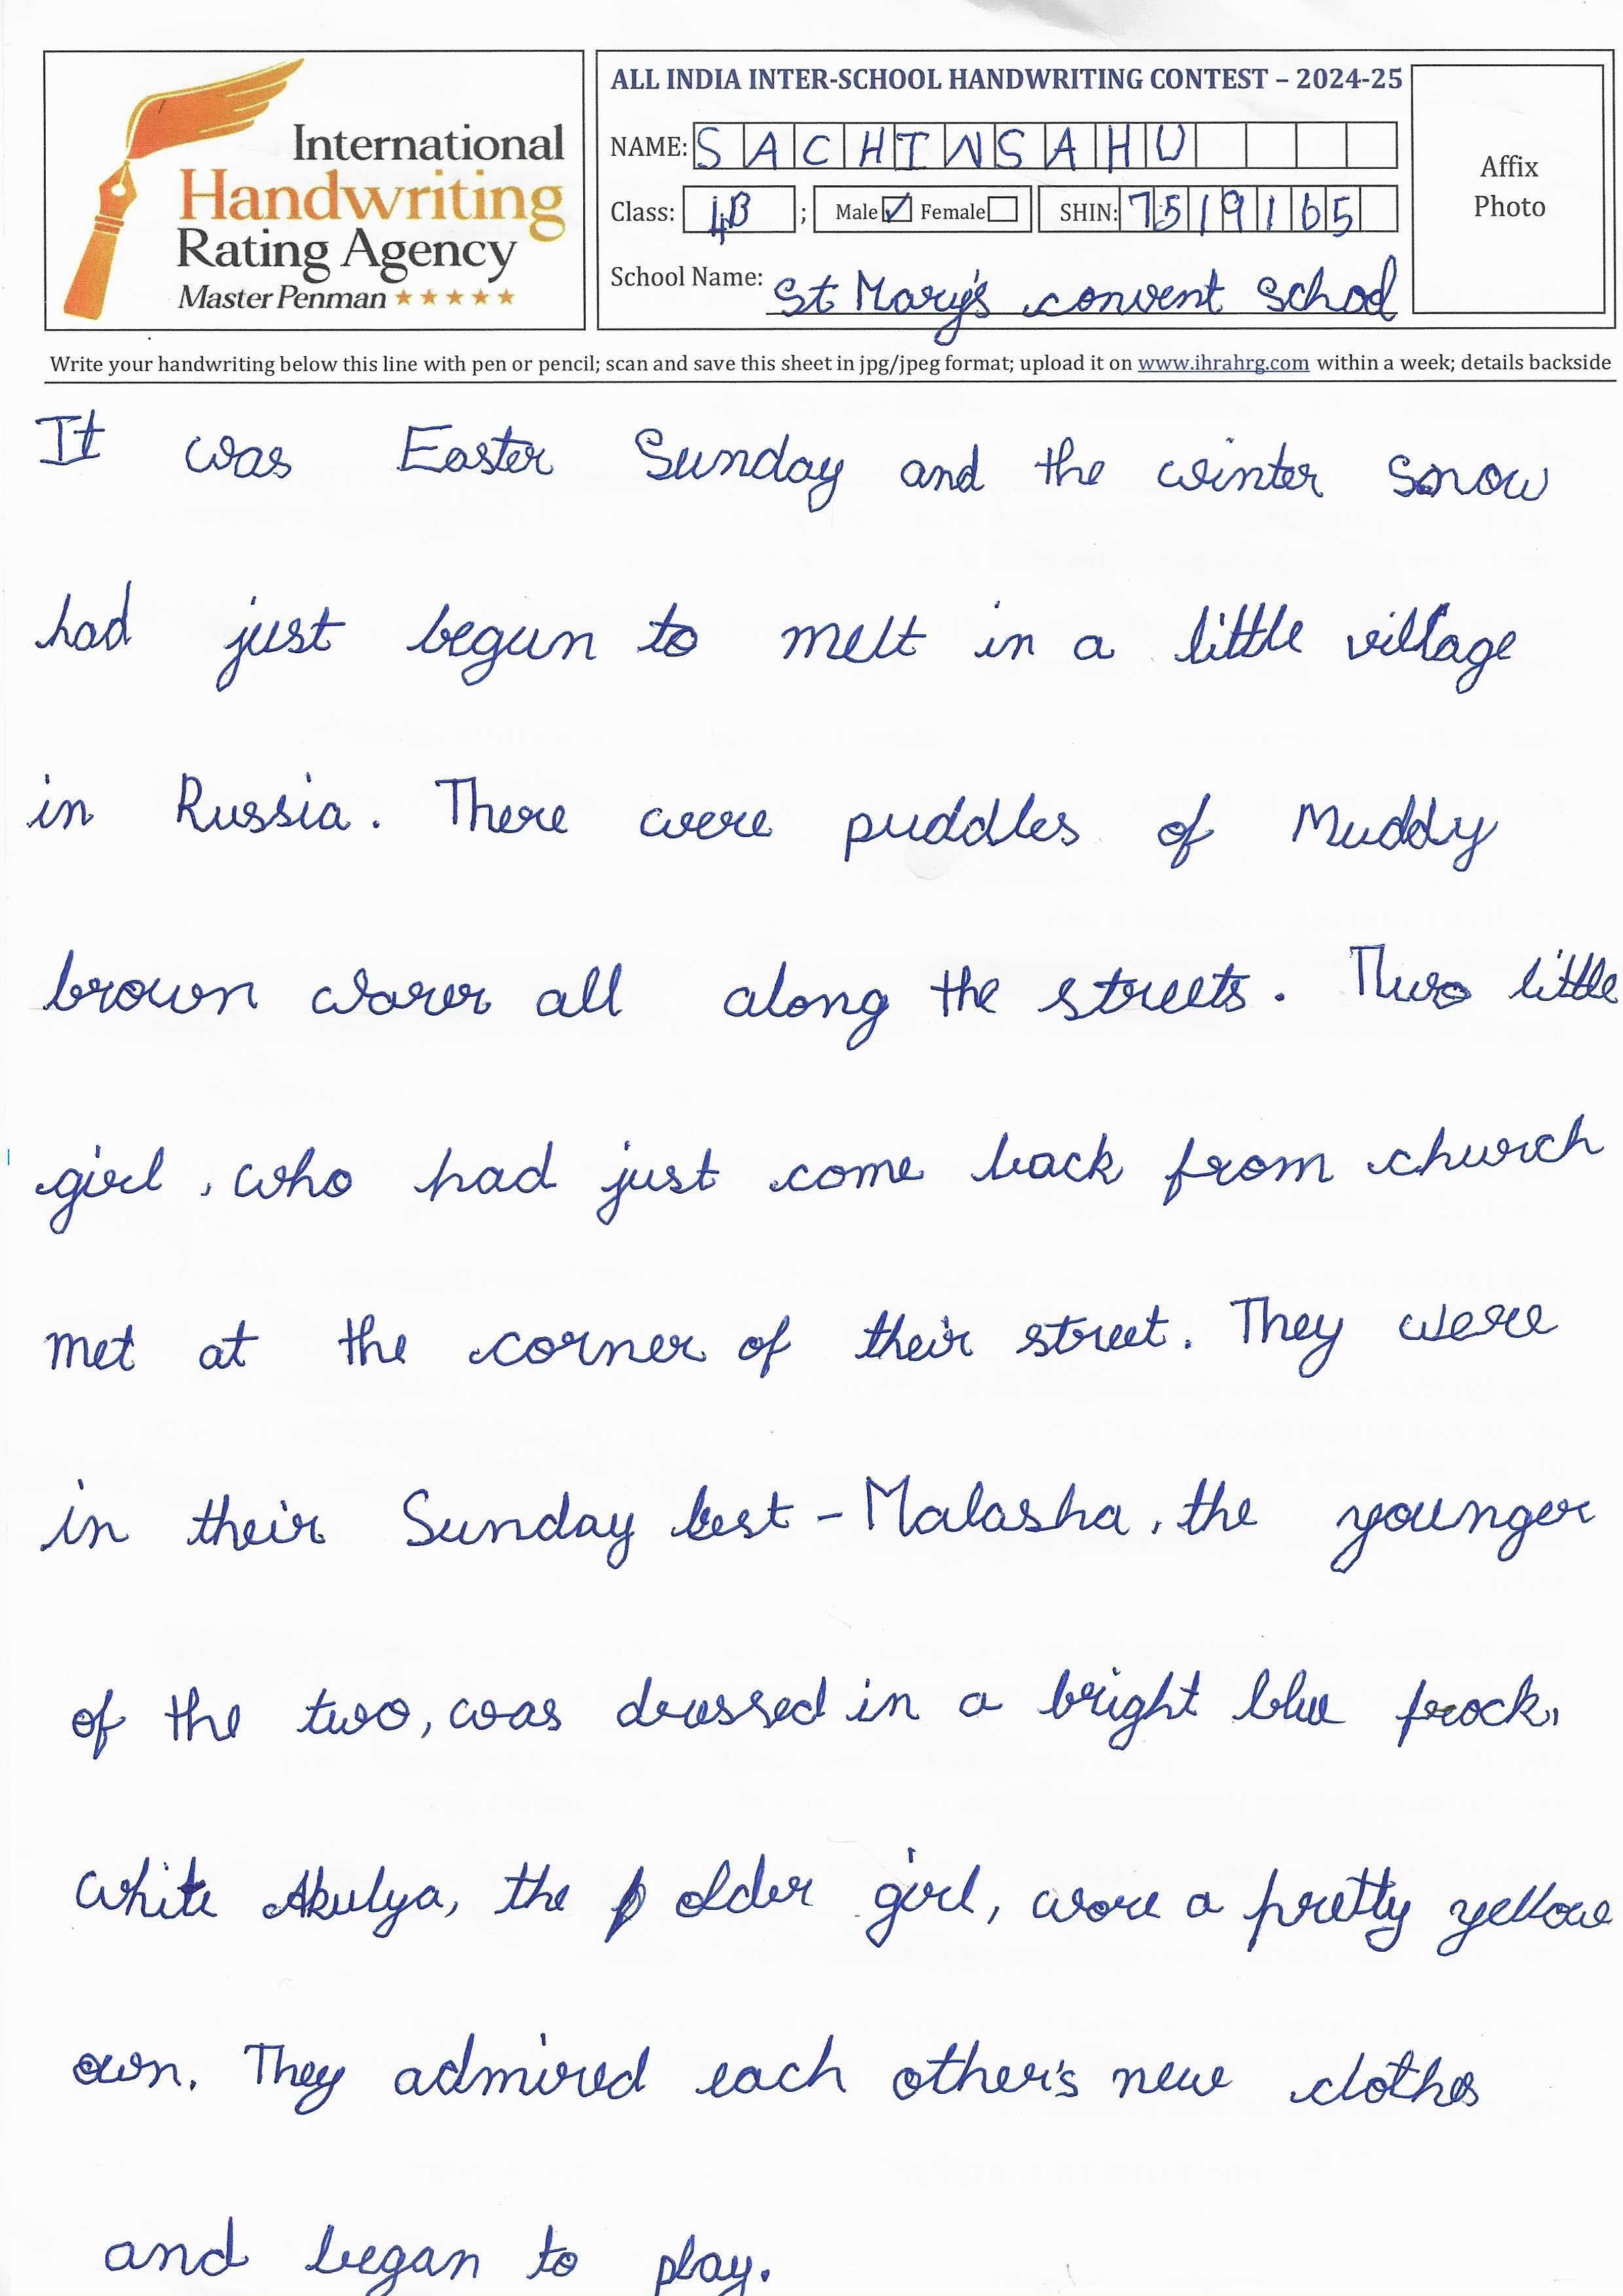 International
Handwriting
Rating Agency
Master Penman
ALL INDIA INTER-SCHOOL HANDWRITING CONTEST – 2024-25
NAME: SACHINSAHU
Class: 4B ; Male ✓ Female SHIN: 7519165
School Name: St Mary's convent School
Affix
Photo
Write your handwriting below this line with pen or pencil; scan and save this sheet in jpg/jpeg format; upload it on www.ihrahrg.com within a week; details backside
It was Easter Sunday and the winter snow
had just begun to melt in a little village
in Russia. There were puddles of Muddy
brown warer all along the streets. Two little
girl, who had just come back from church
met at the corner of their street. They were
in their Sunday best - Malasha, the younger
of the two, was dressed in a bright blue frock,
white Akulya, the older girl, wore a pretty yellow
own. They admired each other's new clothes
and began to play.